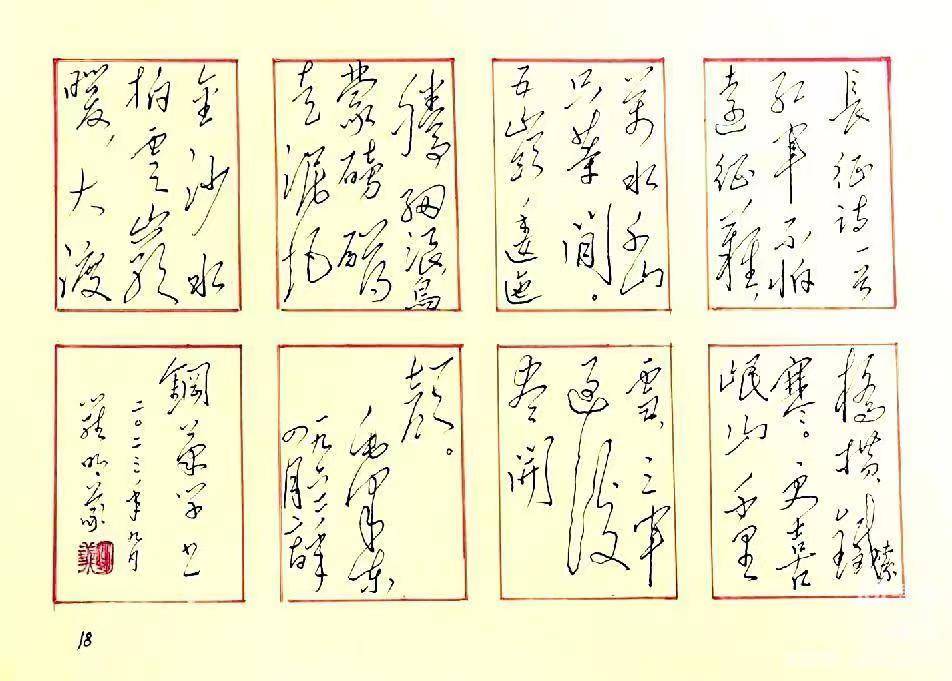 長征诗一首
红军不怕
遠征難,
萬水千山
只等閒。
五嶺逶迤
騰細浪烏
蒙磅礴
走泥丸
金沙水
拍雲崖
暖,大渡
橋横鐵索
寒。更喜
岷山千里
雪,三军
過後
盡開
颜。
毛泽东
一九六二年
四月二十日
鋼筆字书
二〇二三年九月
18